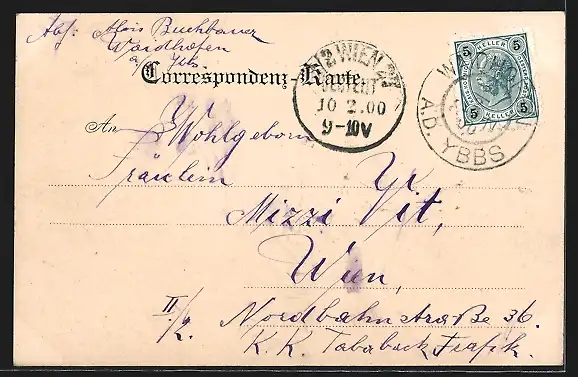 Abs: Alois Buchbauer
Waidhofen
a/ Ybbs
Correspondenz-Karte.
WIEN
BESTELLT
10 2.00
9-10V
5 HELLER 5
5 HELLER 5
A.D. YBBS
An Wohlgeborn
Fräulein
Mizzi Vit,
Wien,
II/2. Nordbahnstraße 36.
K. K. Taback Trafik.